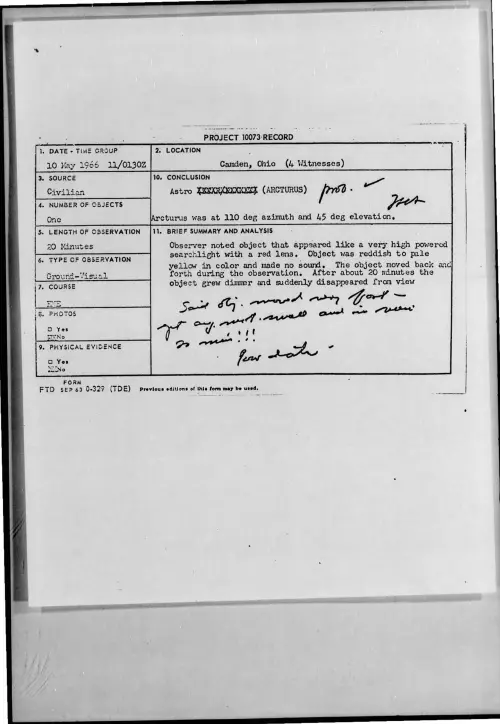 PROJECT 10073 RECORD
1. DATE - TIME GROUP
10 May 1966 11/0130Z
2. LOCATION
Camden, Ohio (4 Witnesses)
3. SOURCE
Civilian
10. CONCLUSION
Astro (ARCTURUS) prob.
Arcturus was at 110 deg azimuth and 45 deg elevation.
4. NUMBER OF OBJECTS
One
5. LENGTH OF OBSERVATION
20 Minutes
11. BRIEF SUMMARY AND ANALYSIS
Observer noted object that appeared like a very high powered
searchlight with a red lens. Object was reddish to pale
yellow in color and made no sound. The object moved back and
forth during the observation. After about 20 minutes the
object grew dimmer and suddenly disappeared from view
6. TYPE OF OBSERVATION
Ground-Visual
7. COURSE
Said obj. moved very fast -
yet ang. small and in view
20 min!!!
Poor data -
8. PHOTOS
□ Yes
No
9. PHYSICAL EVIDENCE
□ Yes
No
FORM
FTD SEP 63 0-329 (TDE) Previous editions of this form may be used.